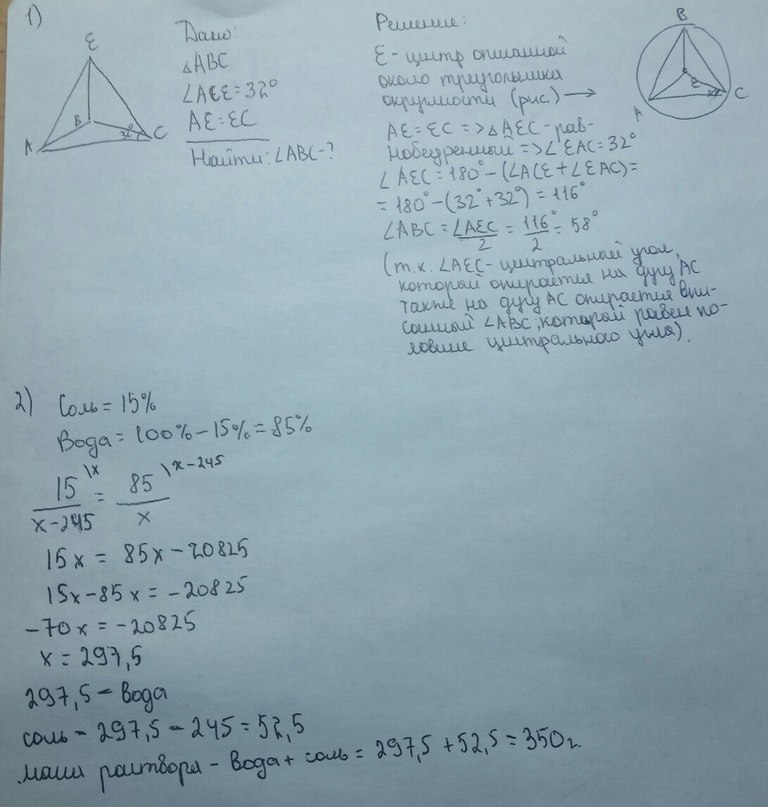 1)
E
B
A
C
32°
Дано:
△ABC
∠ACE = 32°
AE = EC
Найти: ∠ABC - ?
Решение:
E - центр описанной
около треугольника
окружности (рис) →
B
E
A
C
AE = EC => △AEC - рав-
нобедренный => ∠EAC = 32°
∠AEC = 180° - (∠ACE + ∠EAC) =
= 180° - (32° + 32°) = 116°
∠ABC = ∠AEC/2 = 116°/2 = 58°
(т.к. ∠AEC - центральный угол,
который опирается на дугу AC
также на дугу AC опирается впи-
санный ∠ABC, который равен по-
ловине центрального угла).
2) Соль = 15%
Вода = 100% - 15% = 85%
15\x / x-245 = 85\x-245 / x
15x = 85x - 20825
15x - 85x = -20825
-70x = -20825
x = 297,5
297,5 - вода
соль - 297,5 - 245 = 52,5
масса раствора - вода + соль = 297,5 + 52,5 = 350г.